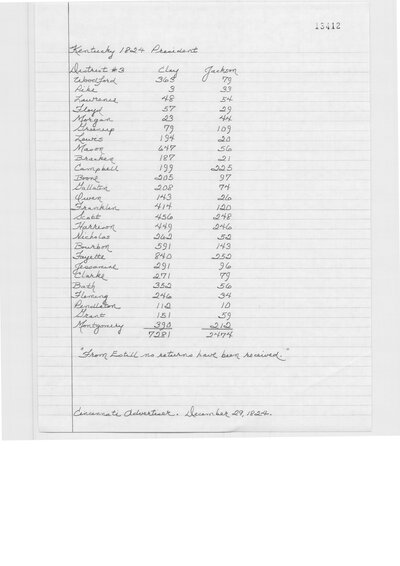 13412
Kentucky 1824 President
District #3 Clay Jackson
Woodford 365 79
Pike 3 33
Lawrence 48 54
Floyd 57 29
Morgan 23 44
Greenup 79 109
Lewis 194 20
Mason 647 56
Bracken 187 21
Campbell 199 225
Boone 205 97
Gallatin 208 74
Owen 143 26
Franklin 414 120
Scott 456 248
Harrison 449 246
Nicholas 262 52
Bourbon 591 143
Fayette 840 252
Jessamine 291 96
Clarke 271 79
Bath 352 56
Fleming 246 34
Pendleton 112 10
Grant 151 59
Montgomery 390 212
7281 2474
"From Estill no returns have been received."
Cincinnati Advertiser. December 29, 1824.